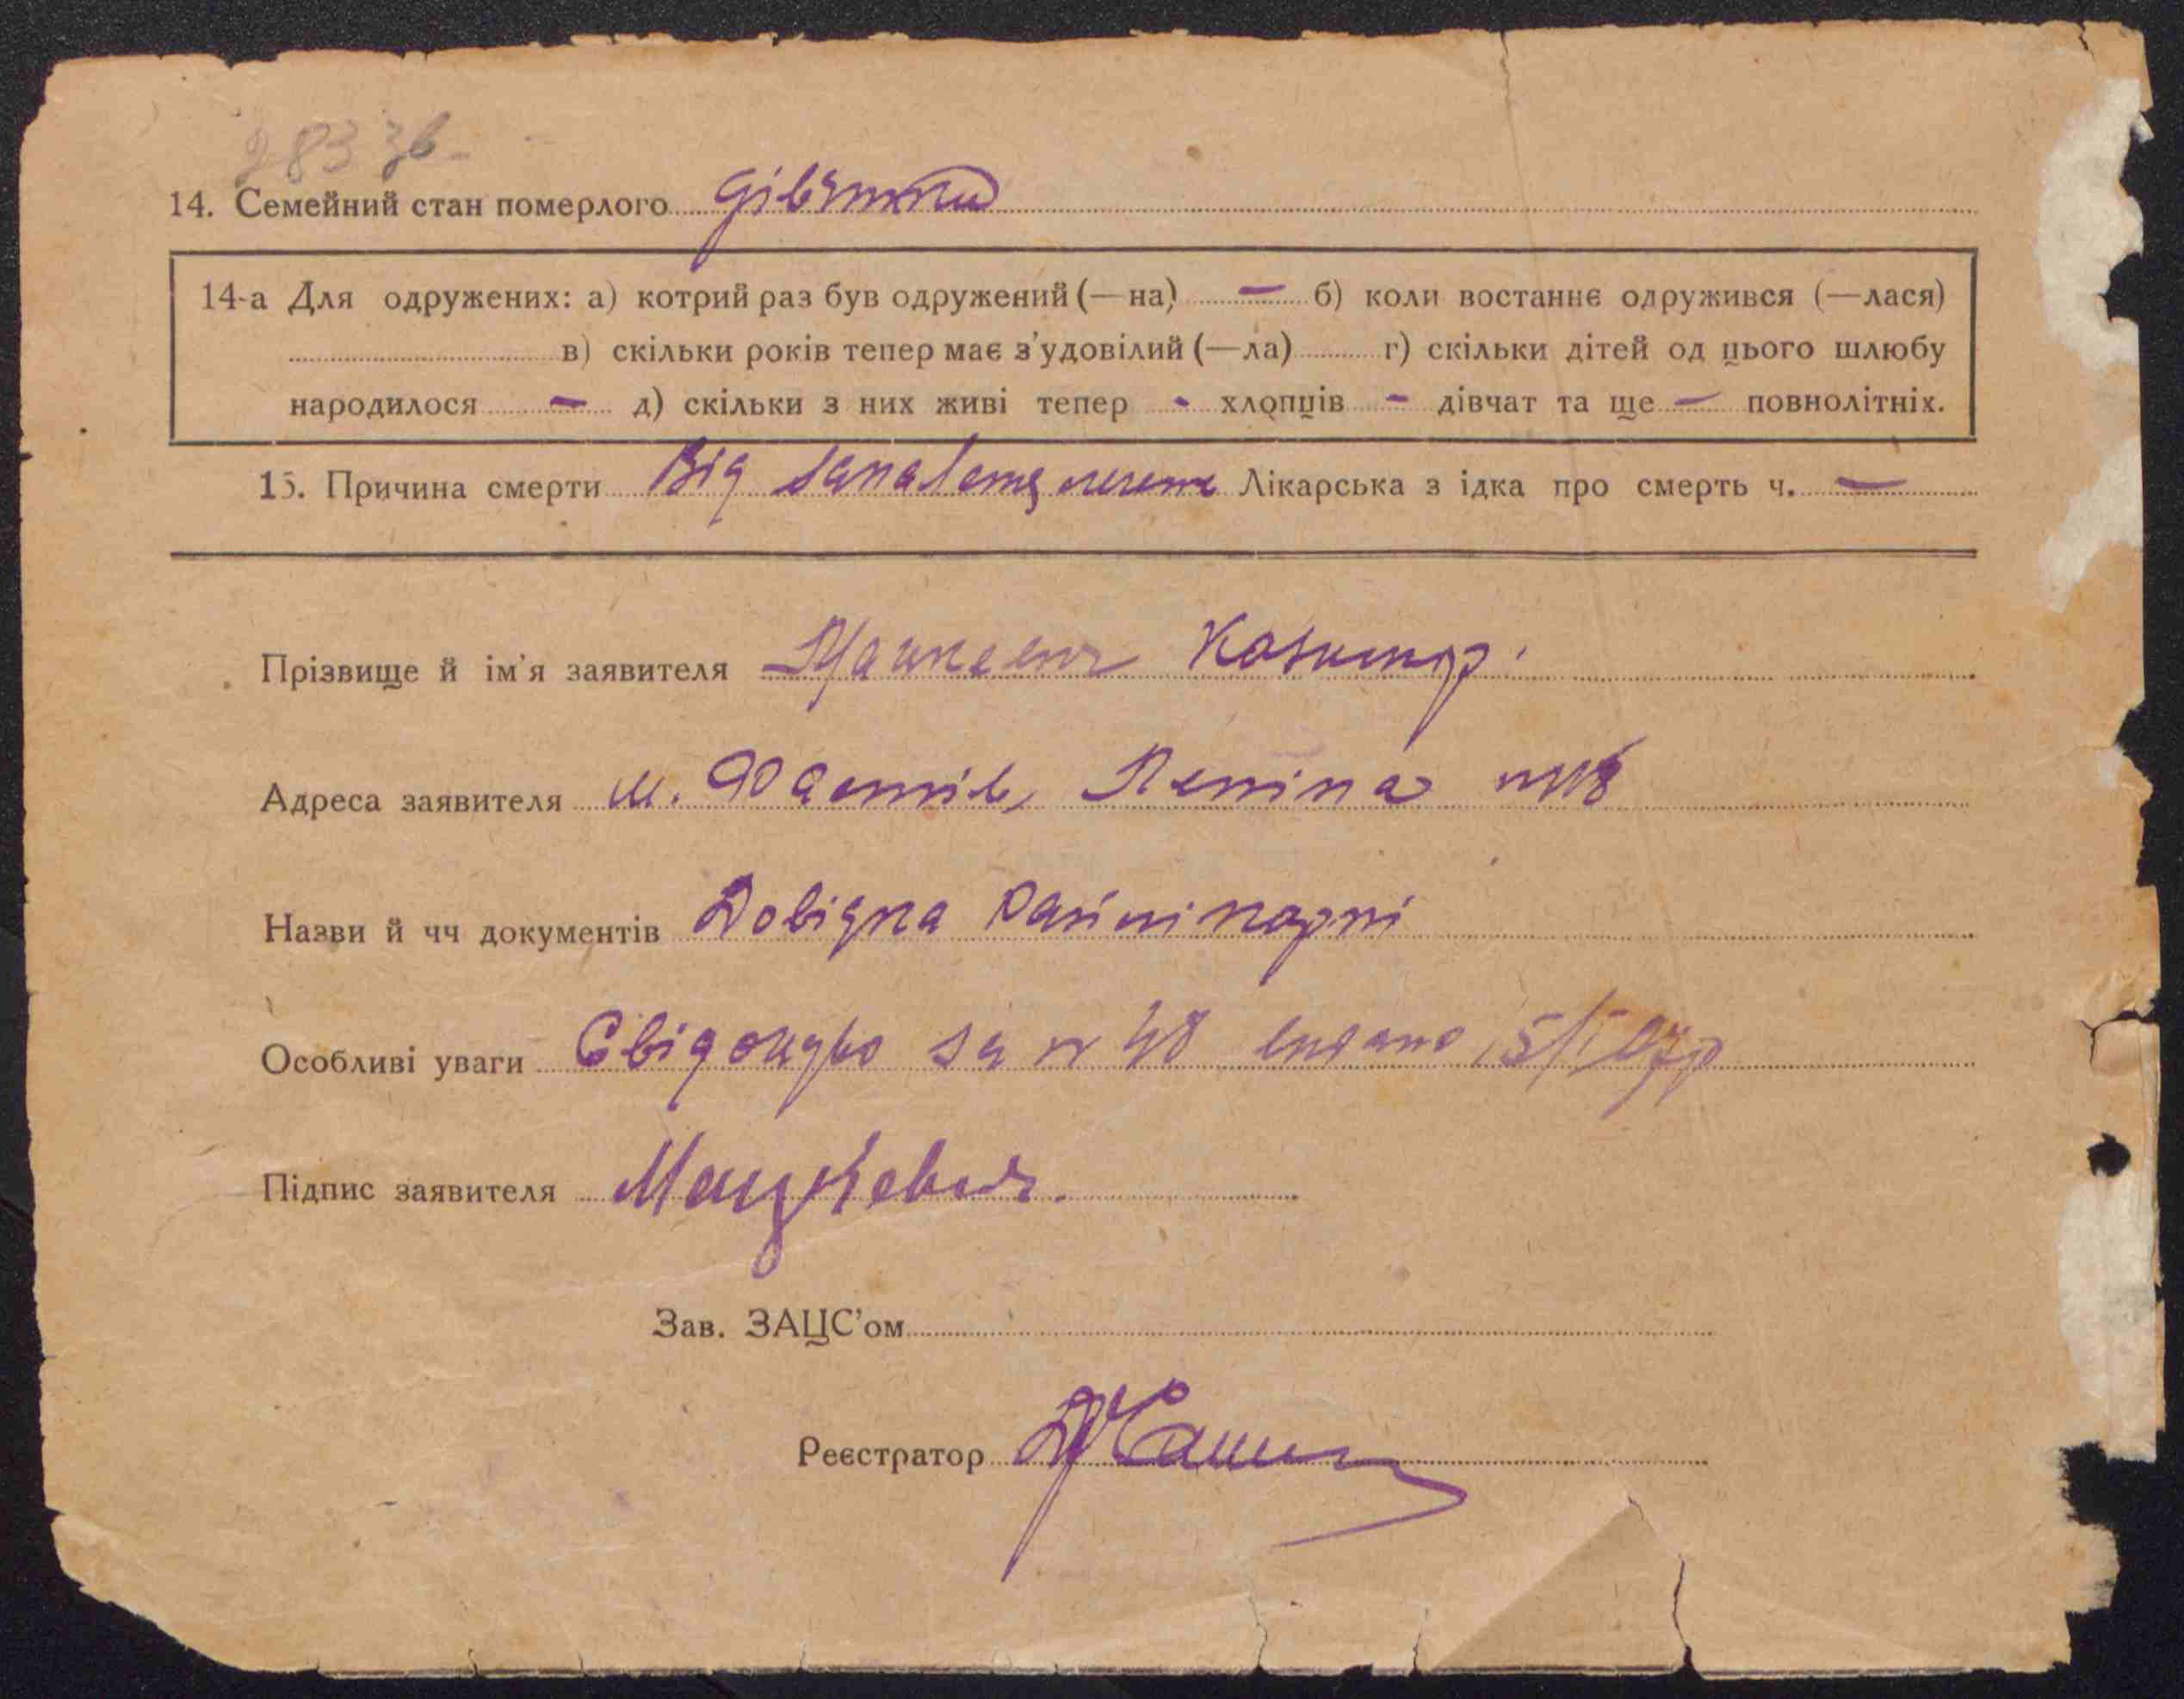 283 зв
14. Семейний стан померлого дівчинка
14-а Для одружених: а) котрий раз був одружений (—на) — б) коли востаннє одружився (—лася)
в) скільки років тепер має з'удовілий (—ла) г) скільки дітей од цього шлюбу
народилося — д) скільки з них живі тепер - хлопців - дівчат та ще — повнолітніх.
15. Причина смерти Від запалення легень Лікарська з ідка про смерть ч. —
Прізвище й ім'я заявителя Мацкевич Казимир.
Адреса заявителя м. Фастів, Леніна
Назви й чч документів Довідка Райлікарні
Особливі уваги Свідоцтво за № 48 видано
Підпис заявителя Мацкевич.
Зав. ЗАЦС'ом
Реєстратор